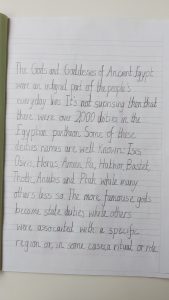 The Gods and Goddesses of Ancient Egypt
were an integral part of the people's
everyday lives. It's not surprising then that
there were over 2000 deities in the
Egyptian pantheon. Some of these
deities names are well known: Isis,
Osiris, Horus, Amun, Ra, Hathor, Bastet,
Thoth, Anubis and Ptah while many
others less so. The more famous gods
became state deities while others
were associated with a specific
region or, in some cases, a ritual or role.